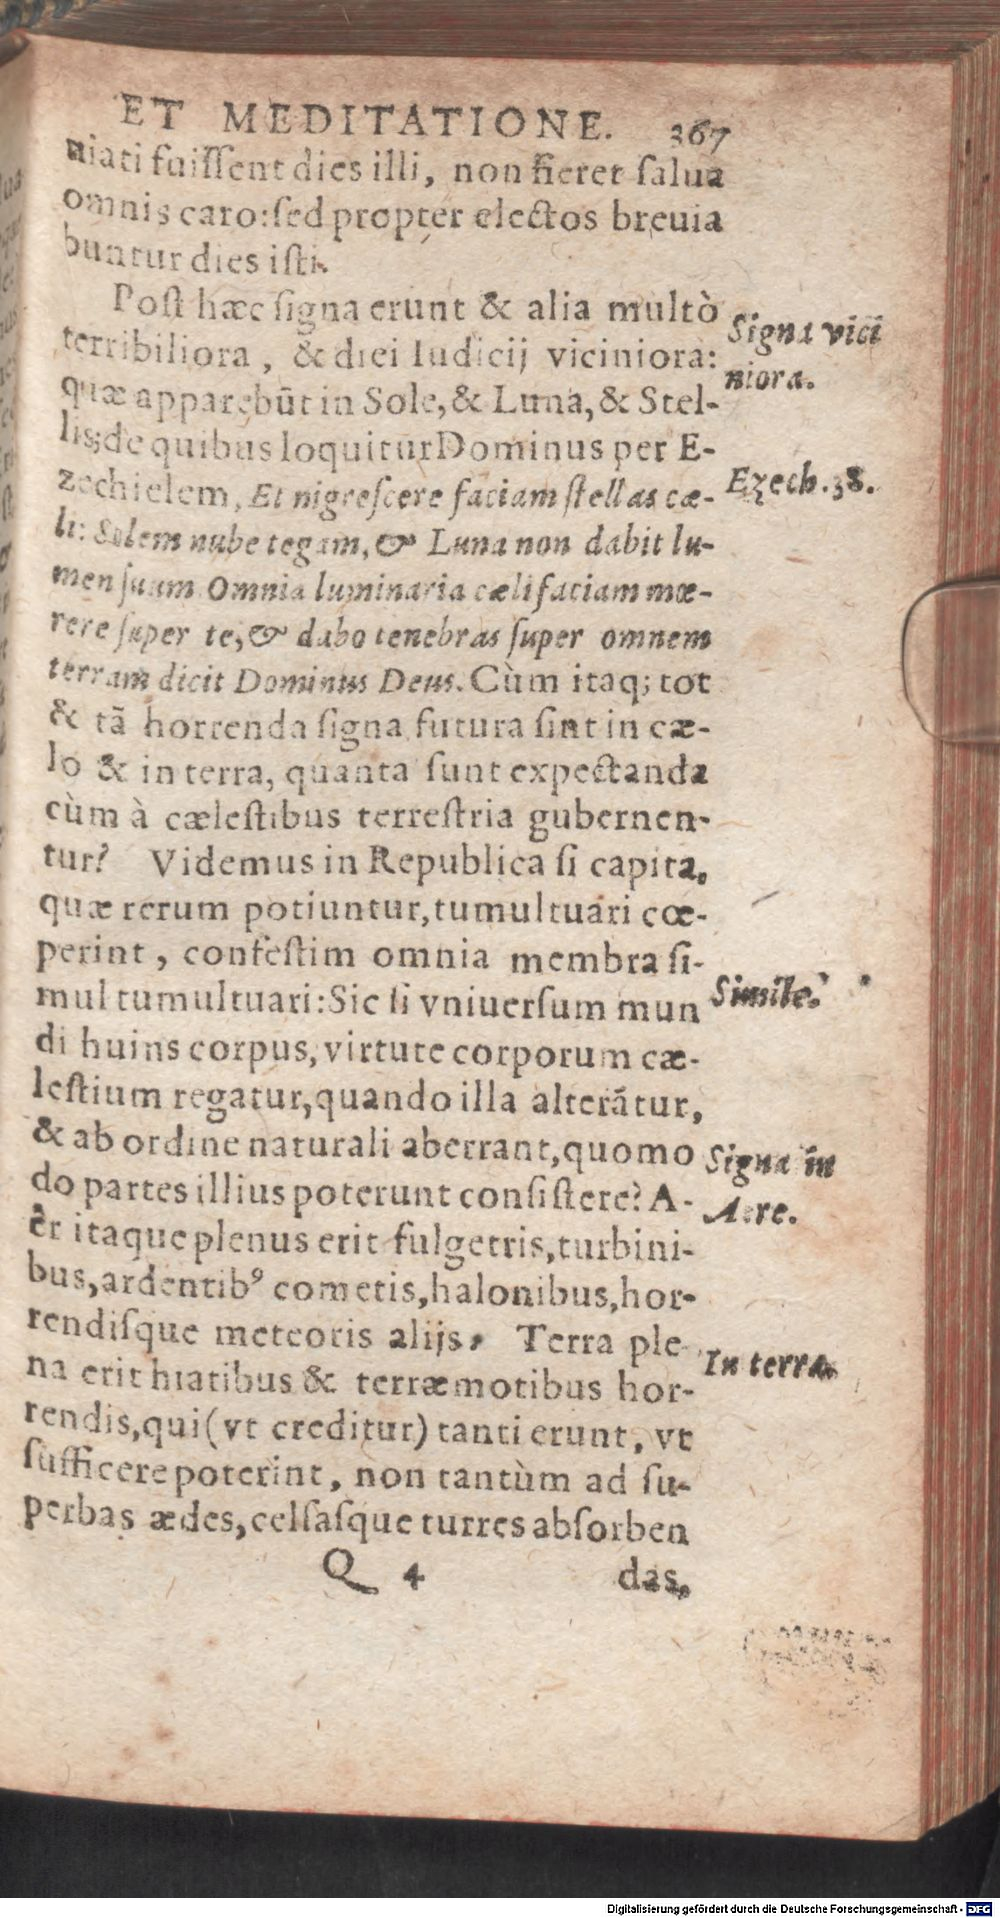 ET MEDITATIONE. 367
niati fuiſſent dies illi, non fieret ſalua
omnis caro: ſed propter electos breuia
buntur dies iſti.
Poſt hæc ſigna erunt & alia multò
terribiliora, & diei Iudicij viciniora:
quæ apparebūt in Sole, & Luna, & Stel-
lis; de quibus loquitur Dominus per E-
zechielem, Et nigreſcere faciam ſtellas cæ-
li: Solem nube tegam, & Luna non dabit lu-
men ſuum. Omnia luminaria cæli faciam mœ-
rere ſuper te, & dabo tenebras ſuper omnem
terram dicit Dominus Deus. Cùm itaq; tot
& tā horrenda ſigna futura ſint in cæ-
lo & in terra, quanta ſunt expectanda
cùm à cæleſtibus terreſtria gubernen-
tur? Videmus in Republica ſi capita,
quæ rerum potiuntur, tumultuari cœ-
perint, confeſtim omnia membra ſi-
mul tumultuari: Sic ſi vniuerſum mun
di huius corpus, virtute corporum cæ-
leſtium regatur, quando illa alterātur,
& ab ordine naturali aberrant, quomo
do partes illius poterunt conſiſtere? A-
ër itaque plenus erit fulgetris, turbini-
bus, ardentibꝰ cometis, halonibus, hor-
rendiſque meteoris alijs. Terra ple-
na erit hiatibus & terræmotibus hor-
rendis, qui (vt creditur) tanti erunt, vt
ſufficere poterint, non tantùm ad ſu-
perbas ædes, celſaſque turres abſorben
Q 4 das,
Signa vici
niora.
Ezech. 38.
Simile.
Signa in
Aere.
In terra.
Digitalisierung gefördert durch die Deutsche Forschungsgemeinschaft - DFG